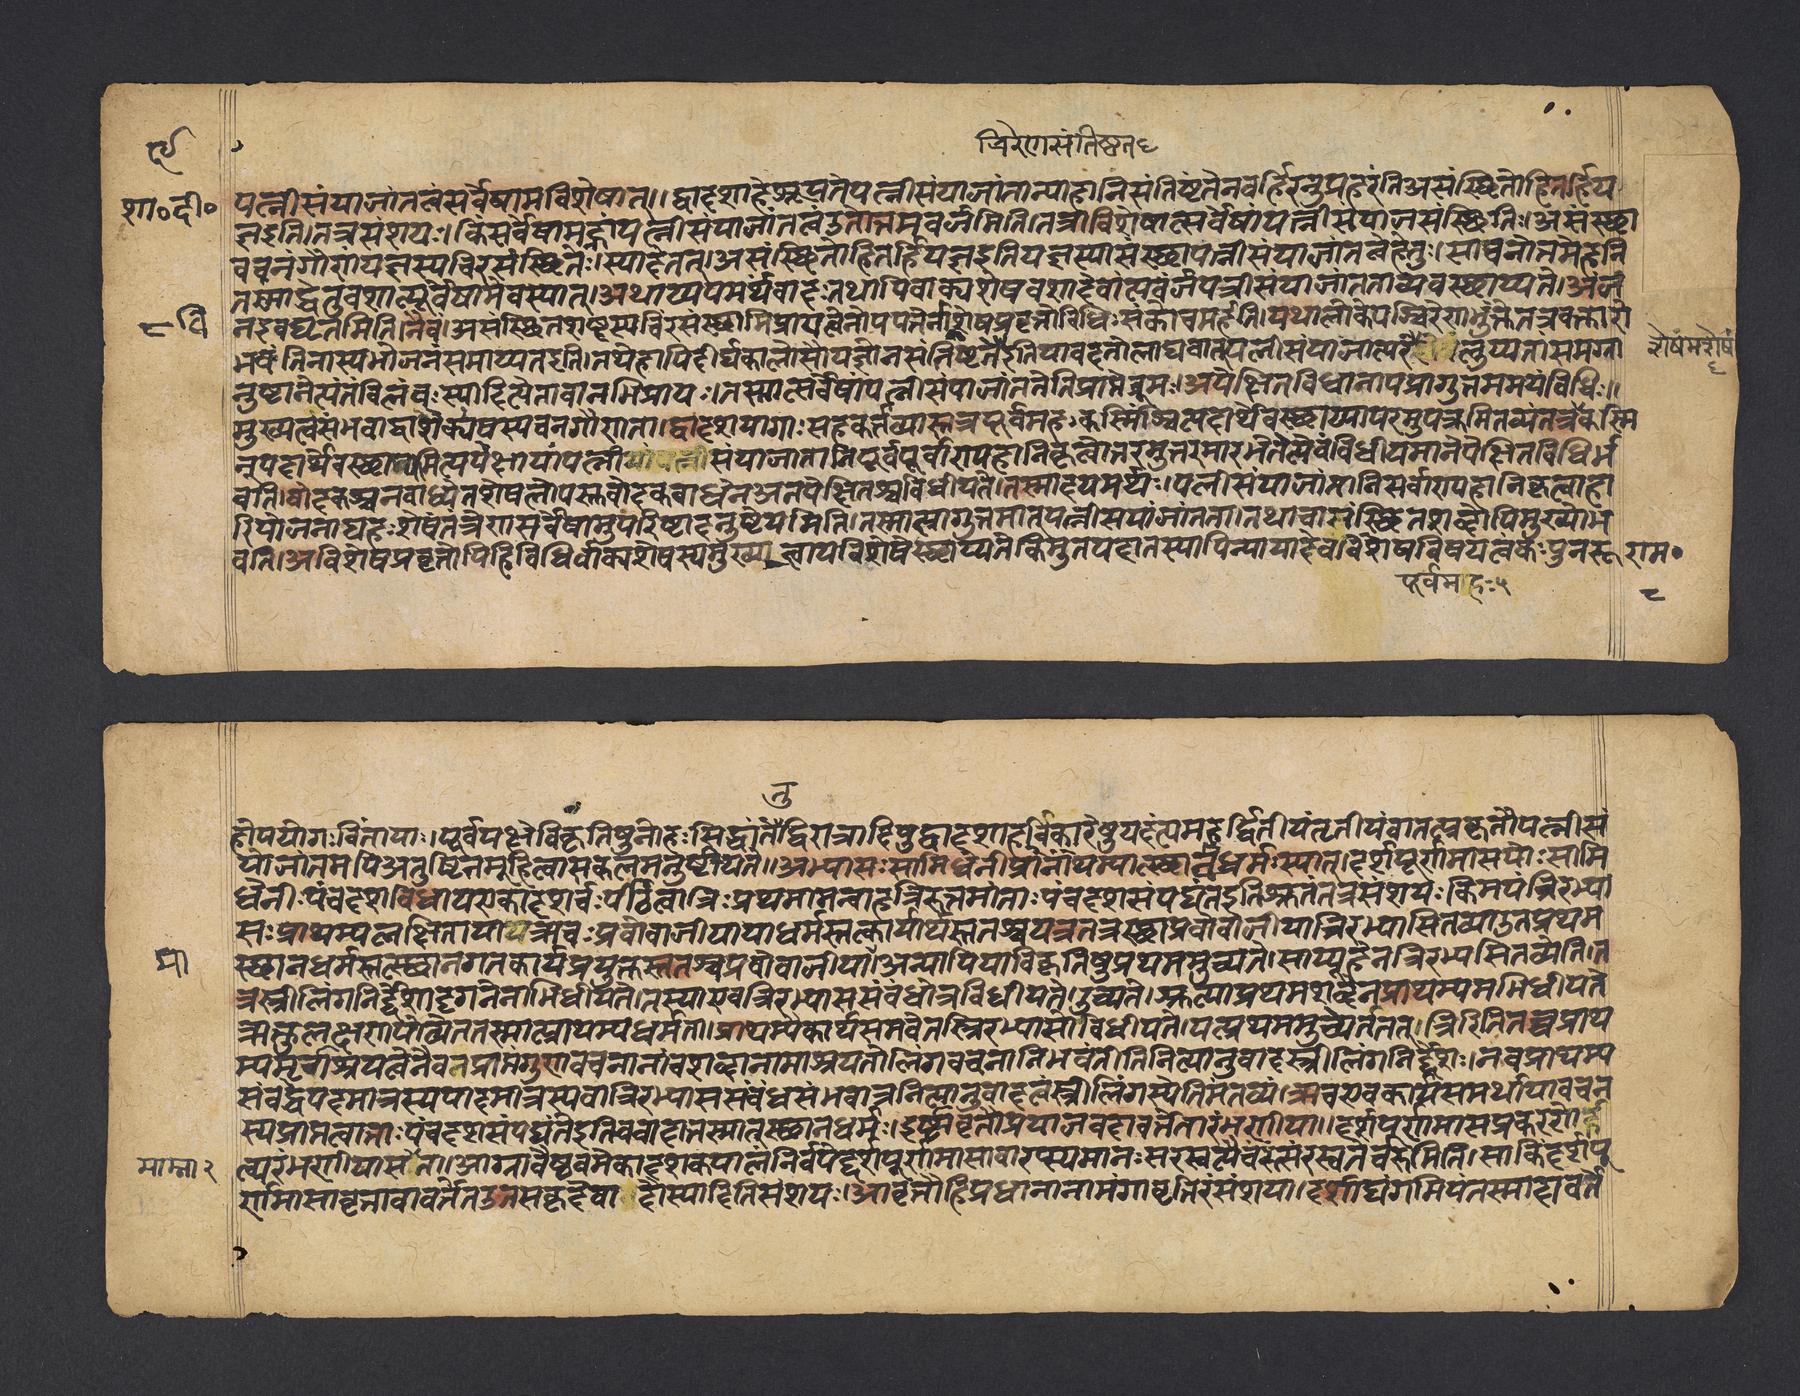 चिरेणसंतिष्ठत६
शा०दी०
पत्नीसंयाजांतत्वंसर्वेषामविशेषात्।।द्वादशाहेश्रूयतेपत्नीसंयाजांतान्यहानिसंतिष्ठंतेनबर्हिरनुप्रहरंतिअसंस्थितोहितर्हिय
ज्ञइति।तत्रसंशयः।किंसर्वेषामह्नांपत्नीसंयाजांतत्वंउतान्त्यमवर्जमिति।तत्राविशेषात्सर्वेषांपत्नीसंयाजसंस्थितिः।असंस्था
वचनंगौणंयज्ञस्यचिरसंस्थितेः।स्यादेतत्।असंस्थितोहितर्हियज्ञइतियज्ञस्यासंस्थापत्नीसंयाजांतत्वहेतुः।साचनोत्तमेहनि
तस्माद्धेतुवशात्पूर्वेषामेवस्यात्।अथाप्ययमर्थवादःतथापिवाक्यशेषवशादेवांत्यवर्जंपत्नीसंयाजांतताव्यवस्थाप्यते।अंजं
८ वि
नइवघृतेनेति।नैवं।असंस्थितशब्दस्यचिरसंस्थाभिप्रायत्वेनोपपत्तेर्नाविशेषप्रवृत्तोविधिःसंकोचमर्हति।यथालोकेपश्चिरेणभुंक्तेतत्रवक्तारो
भवंतिनास्यभोजनंसमाप्यतइति।तथेहापिदीर्घकालोसौयज्ञोनसंतिष्ठतेइतियावदतोलाघवात्पत्नीसंयाजात्परं लुप्यतांसमग्रा
शेषमशेषं ६
नुष्ठानेत्यंतंविलंबःस्यादित्येतावानभिप्रायः।तस्मात्सर्वेषांपत्नीसंयाजांततेतिप्राप्तेब्रूमः।अपेक्षितविधानायप्रागुत्तममयंविधिः।।
मुख्यत्वसंभवाद्वाशेवाक्यशेषस्यवनगौणता।द्वादशयागाःसहकर्तव्यास्तत्रपूर्वमहःकस्मिंश्चित्पदार्थेवस्थाप्यापरमुपक्रमितव्यंतत्रकस्मि
न्पदार्थेवस्थाप्यमित्यपेक्षायांपत्नी संयाजांतानिपूर्वपूर्वाण्यहानिकृत्वोत्तरमुत्तरमारभेतेत्येवंविधीयमानेपेक्षितविधिर्भ
वति।चोदकश्चनबाध्येतशेषलोपस्तुचोदकबाधेनअनपेक्षितश्चविधीयते।तस्मादयमर्थः।पत्नीसंयाजांतानिसर्वाण्यहानिकृत्वाहा
रियोजनाद्यहःशेषंतंत्रेणसर्वेषामुपरिष्टादनुष्ठेयमिति।तस्मात्प्रागुत्तमात्पत्नीसंयाजांतता।तथाचासंस्थितशब्दोपिमुख्योभ
वति।अविशेषप्रवृत्तोपिहिविधिर्वाक्यशेषस्यमुख्य त्वायविशेषेस्थाप्यतेकिमुतयदातस्यापिन्यायादेवविशेषविषयत्वंकःपुनरू
राम०
पूर्वमहः५
८
नु
होपयोगःचिंतायाः।पूर्वपक्षेविकृतिषुनोहःसिद्धांतेद्विरात्रादिषुद्वादशाहविकारेषुयदंत्यमहर्द्वितीयंतृतीयंवातत्प्रकृतौपत्नीसं
याजांतमपिअनुष्ठितमूहित्वासकलमनुष्ठीयते।।अभ्यासःसामिधेनीनांप्राथम्यात्स्थानधर्मःस्यात्।दर्शपूर्णमासयोःसामि
धेनीःपंचदशविधायएकादशर्चःपठित्वात्रिःप्रथमामन्वाहत्रिरुत्तमांताःपंचदशसंपद्यंतइतिश्रुतंतत्रसंशयःकिमयंत्रिरभ्या
सःप्राथम्यलक्षितायायत्रक्वचःप्रवोवाजीयायाधर्मस्तत्कार्यार्थस्ततश्चयत्रतत्रस्थाप्रवोवाजीयात्रिरभ्यासितव्याउतप्रथम
स्थानधर्मस्तत्स्थानगतकार्यप्रयुक्तस्ततश्चप्रवोवाजीया।अन्यापियाविकृतिषुप्रथममुच्यते।साप्यूहेनत्रिरभ्यसितव्येति।त
त्रस्त्रीलिंगनिर्द्देशादृगनेनाभिधीयते।तस्याएवत्रिरभ्याससंबंधोत्रविधीयते।उच्यते।श्रुत्याप्रथमशब्देनप्राथम्यमभिधीयते
ऋक्तुलक्षणयोच्येतितस्मात्प्राथम्यधर्मता।प्राथम्यंकार्यसमवेतंत्रिरभ्यासोविधीयते।यत्प्रथममुच्यतेतत्।त्रिरितितच्चप्राथ
म्यमृचांश्रयत्वेनैवतत्प्राप्तंगुणवचनानांचशब्दानामाश्रयतोलिंगवचनानिभवंतीतिनित्यानुवादःस्त्रीलिंगनिर्द्देशः।नचप्राथम्य
संबद्धपदमात्रस्यपादमात्रस्यवात्रिरभ्याससंबंधसंभवान्ननित्यानुवादत्वंस्त्रीलिंगस्येतिमंतव्यं।ऋचएवकार्यसामर्थ्यायावचन
स्यप्राप्तत्वात्ताःपंचदशसंपद्यंतेइतिचवादात्तस्मात्स्थानधर्मः।इष्ट्यावृत्तौप्रयाजवदावर्त्तेतारंभणीया।।दर्शपूर्णमासप्रकरणे
माम्ना२
त्यारंभणीयासमाम्नाता।आग्नावैष्णवमेकादशकपालंनिर्वपेद्दर्शपूर्णमासावारप्स्यमानःसरस्वत्यैचरुंसरस्वतेचरुमिति।साकिंदर्शपू
र्णमासावृत्तावावर्त्तेतउतसकृदेवा दौस्यादितिसंशयः।आवृत्तौहिप्रधानानामंगावृत्तिरसंशया।दर्शाद्यंगमियंतस्मादावर्ते